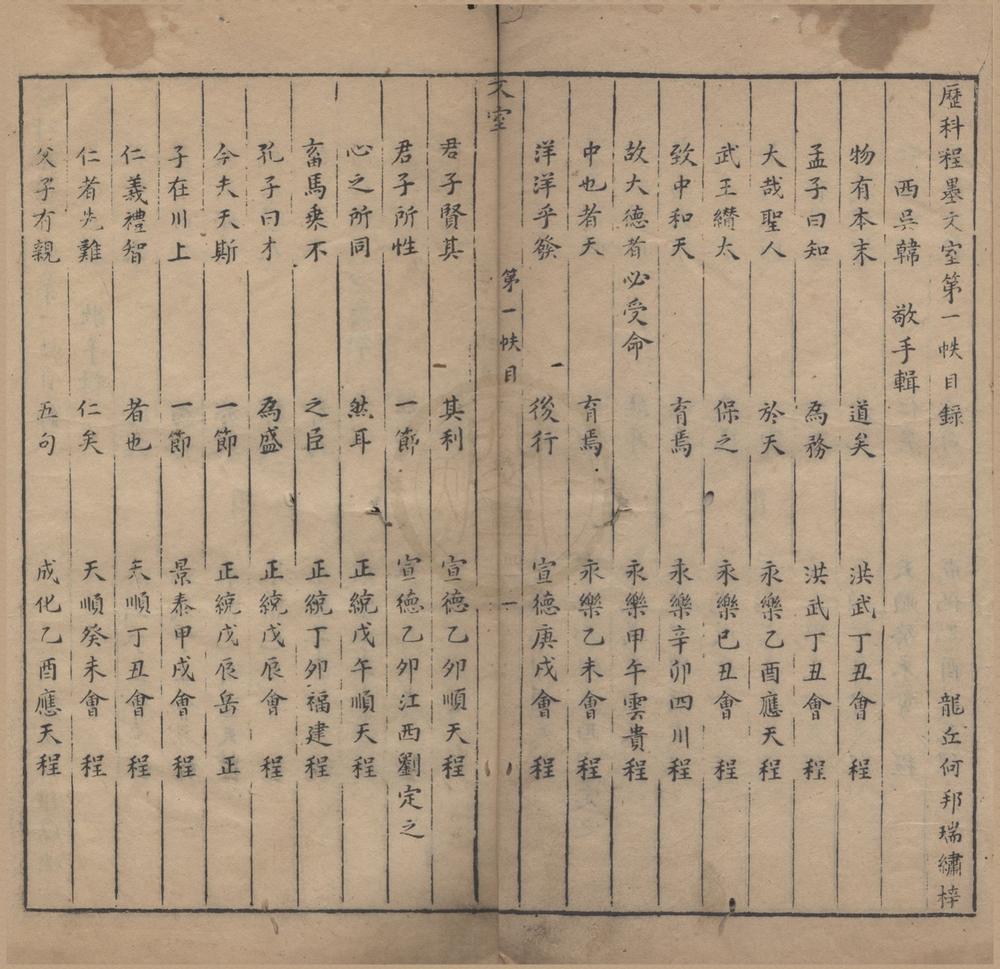 歷科程墨文室第一帙目錄 龍丘何邦瑞繡梓
西吳韓 敬手輯
物有本末 道矣 洪武丁丑會 程
孟子曰知 為務 洪武丁丑會 程
大哉聖人 於天 永樂乙酉應天 程
武王纘太 保之 永樂己丑會 程
致中和天 育焉 永樂辛卯四川 程
故大德者必受命 永樂甲午雲貴 程
中也者天 育焉 永樂乙未會 程
洋洋乎發 後行 宣德庚戌會 程
文室 第一帙目 一
君子賢其 其利 宣德乙卯順天 程
君子所性 一節 宣德乙卯江西劉定之
心之所同 然耳 正統戊午順天 程
畜馬乘不 之臣 正統丁卯福建 程
孔子曰才 為盛 正統戊辰會 程
今夫天斯 一節 正統戊辰岳 正
子在川上 一節 景泰甲戌會 程
仁義禮智 者也 天順丁丑會 程
仁者先難 仁矣 天順癸未會 程
父子有親 五句 成化乙酉應天 程